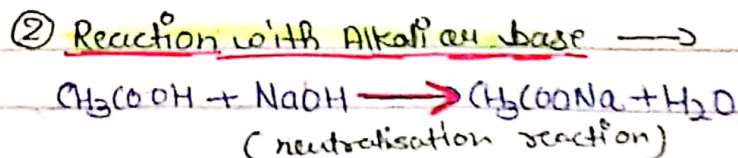 ② Reaction with Alkali as base →
CH₃COOH + NaOH → CH₃COONa + H₂O
(neutralisation reaction)